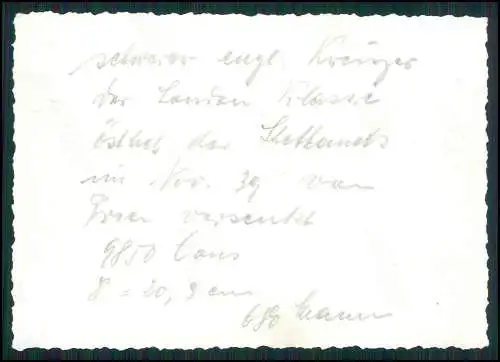 schwerer engl. Kreuzer
der London Klasse
östlich der Shetlands
im Nov. 39 von
Prien versenkt
9850 Tons
8 = 20,3 cm
680 Mann